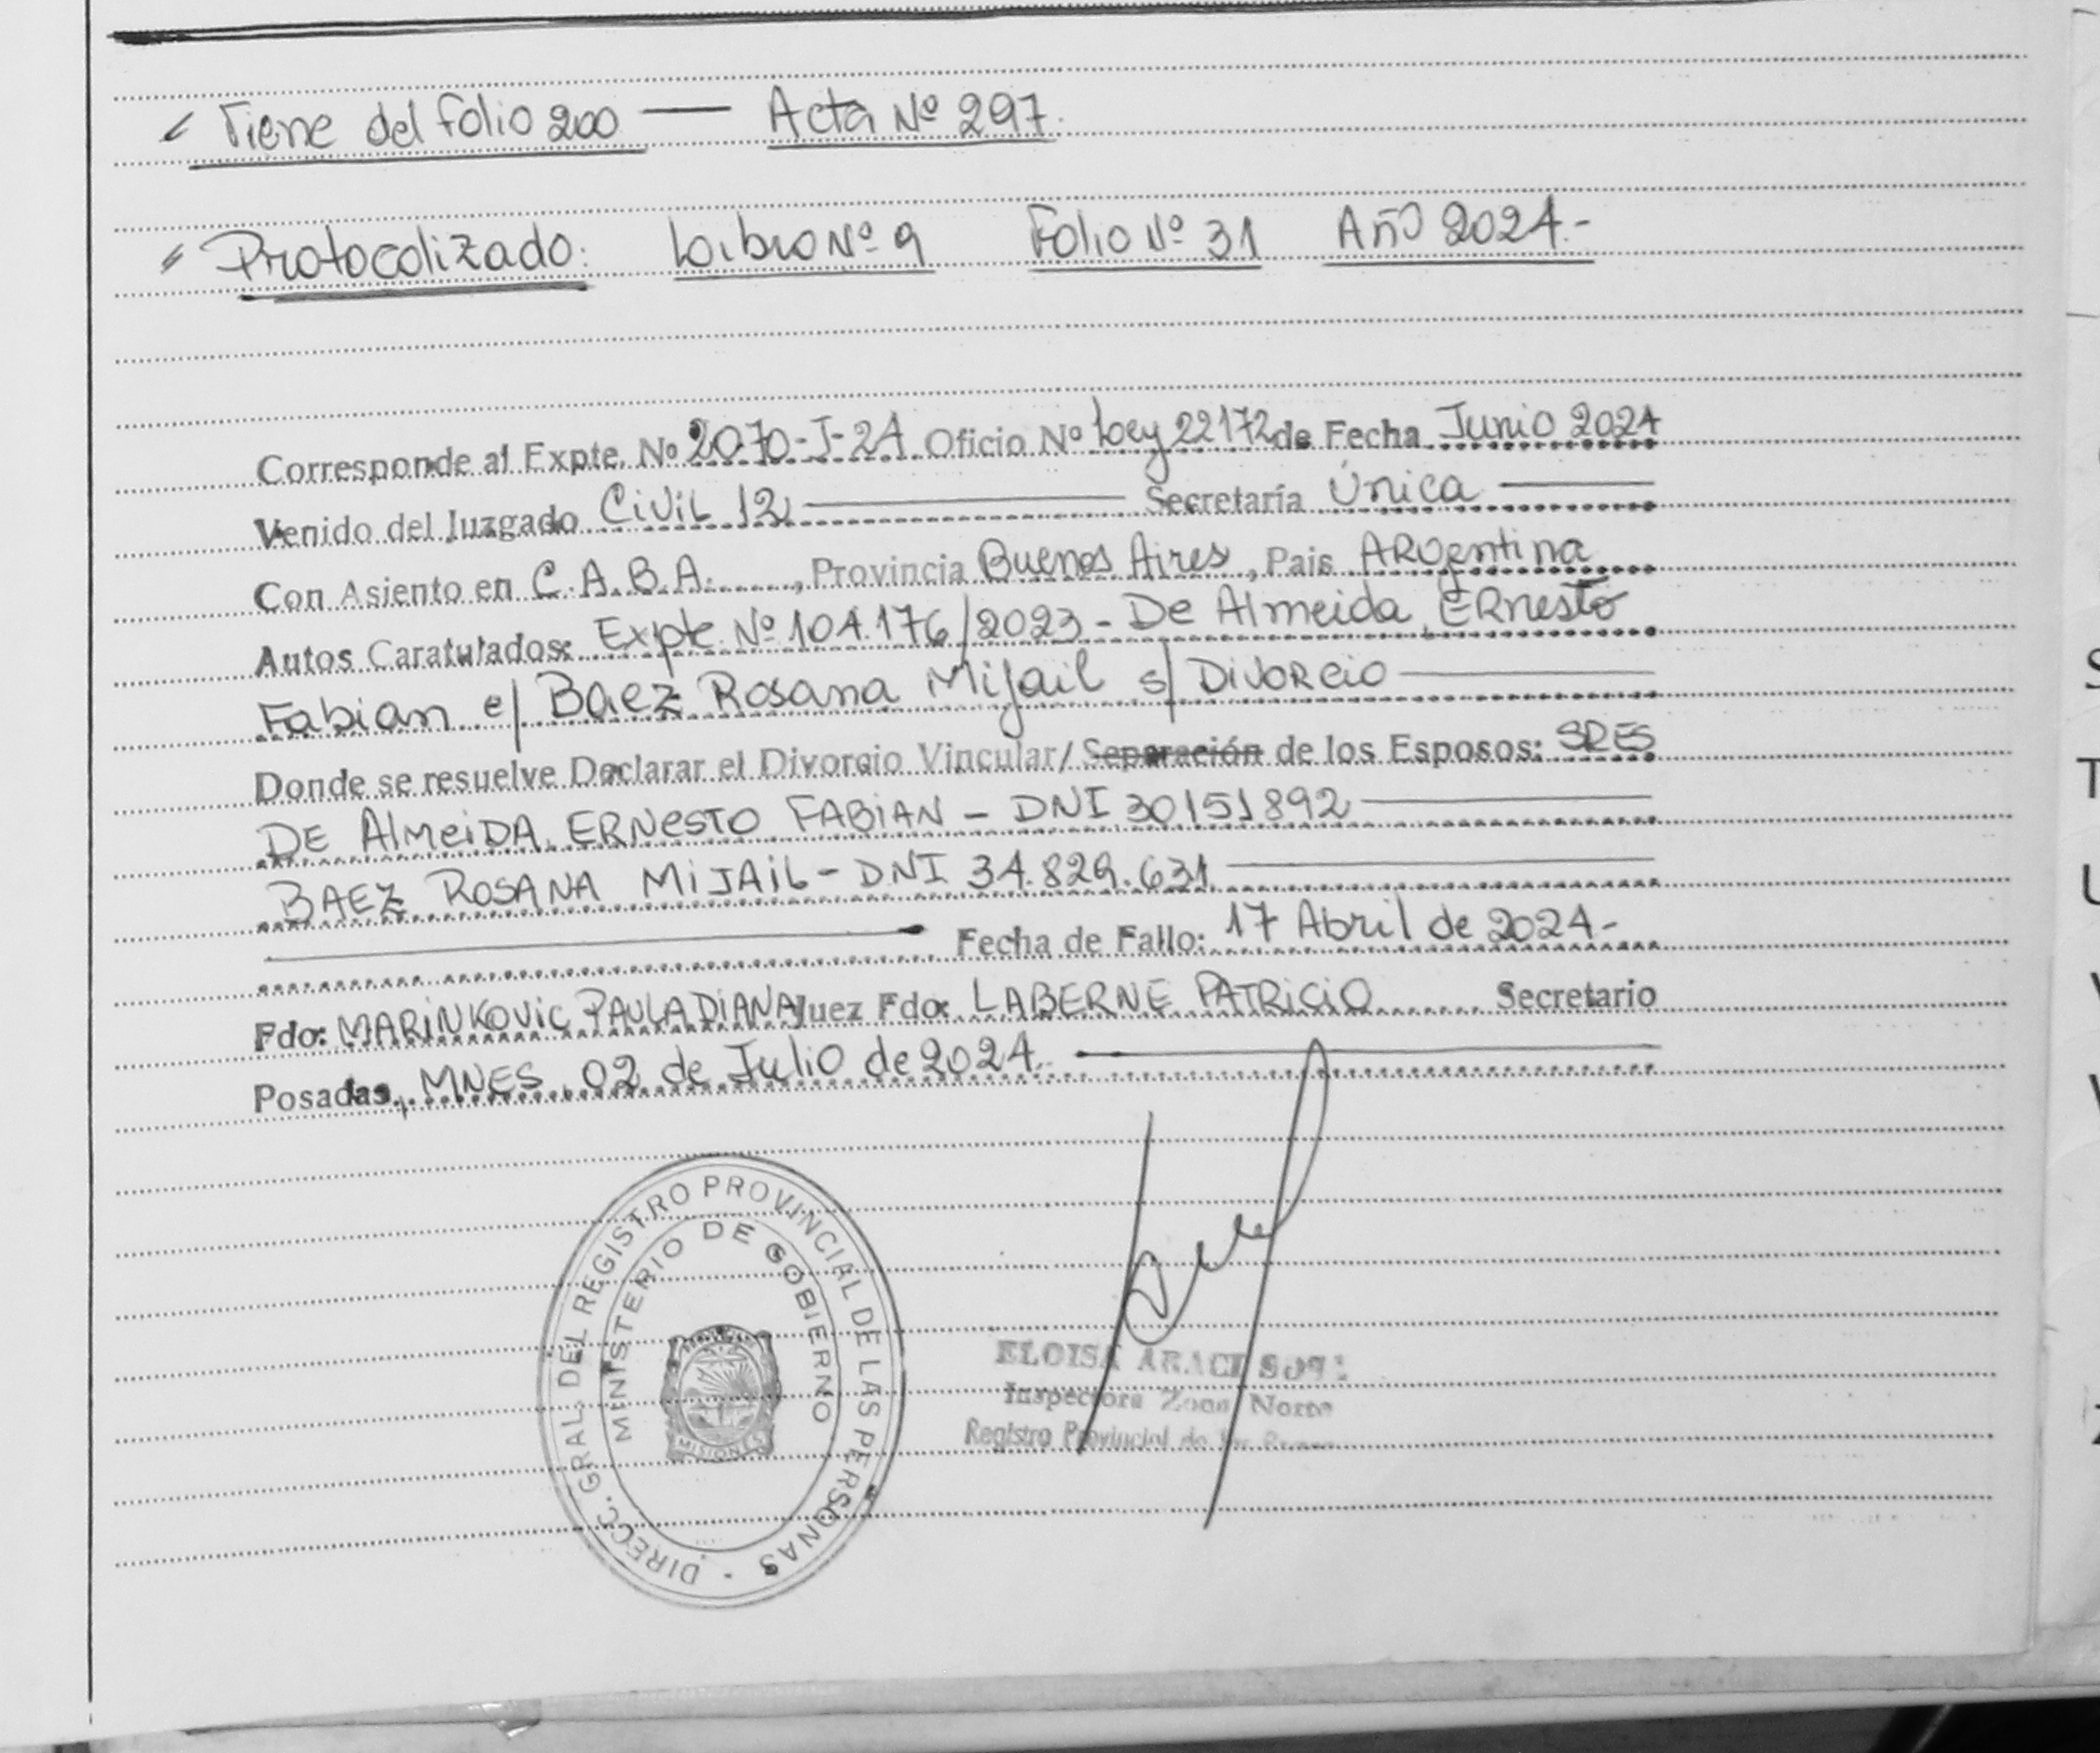 Viene del folio 200 — Acta Nº 297.
Protocolizado: Libro Nº 9 Folio Nº 31 Año 2024.-
Corresponde al Expte. Nº 2070-J-24 Oficio Nº Ley 22172 de Fecha Junio 2024
Venido del Juzgado Civil 12 Secretaría Única
Con Asiento en C.A.B.A. , Provincia Buenos Aires, Pais ARgentina
Autos Caratulados: Expte Nº 104.176/2023 - De Almeida, ERnesto
Fabian c/ Baez Rosana Mijail s/ DivoRcio
Donde se resuelve Declarar el Divorcio Vincular/ Separación de los Esposos: SRES
DE AlmeiDA, ERNESTO FABIAN - DNI 30151892
BAEZ ROSANA MIJAIL - DNI 34.829.631
Fecha de Fallo: 17 Abril de 2024-
Fdo: MARINKOVIC PAULA DIANA Juez Fdo: LABERNE PATRICIO Secretario
Posadas, MNES, 02 de Julio de 2024.
DIRECC. GRAL. DEL REGISTRO PROVINCIAL DE LAS PERSONAS -
MINISTERIO DE GOBIERNO
MISIONES
ELOISA
Inspectora Zona Norte
Registro Provincial de
S
T
U
V